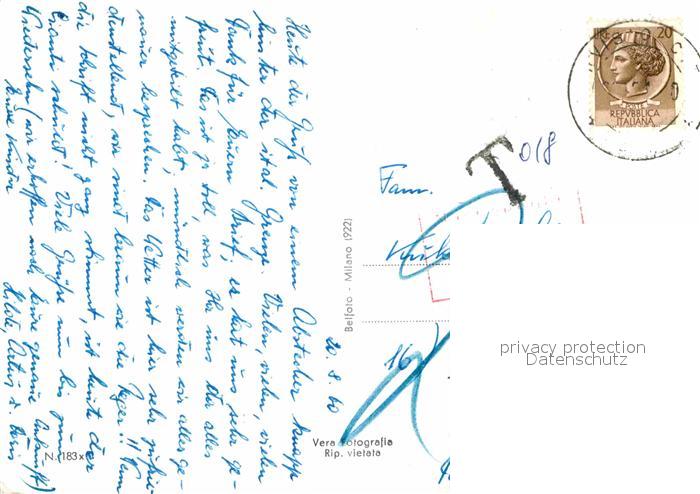 Heute der Gruß von einem Abstecher knapp
hinter der ital. Grenze. Vielen, vielen
Dank für Euren Brief, er hat uns sehr ge-
freut. Das ist ja toll, was Ihr uns da alles
mitgeteilt habt, mündlich werden wir alles ge-
nauer besprechen. Das Wetter ist hier sehr zufrie-
denstellend, wir sind braun wie die Neger!! Wenn
die Schrift nicht ganz stimmt, ist heute der
Cianti schuld! Viele Grüße nun bis zum
Wiedersehen (wir erhoffen noch Eure genaue Ankunft)
Eure Kinder
Hilde, Artur
20.8.60
N. (183x
Belfoto - Milano (922)
Vera Fotografia
Rip. vietata
LIRE 20
POSTE
REPVBBLICA
ITALIANA
T 018
Fam.
16
privacy protection
Datenschutz